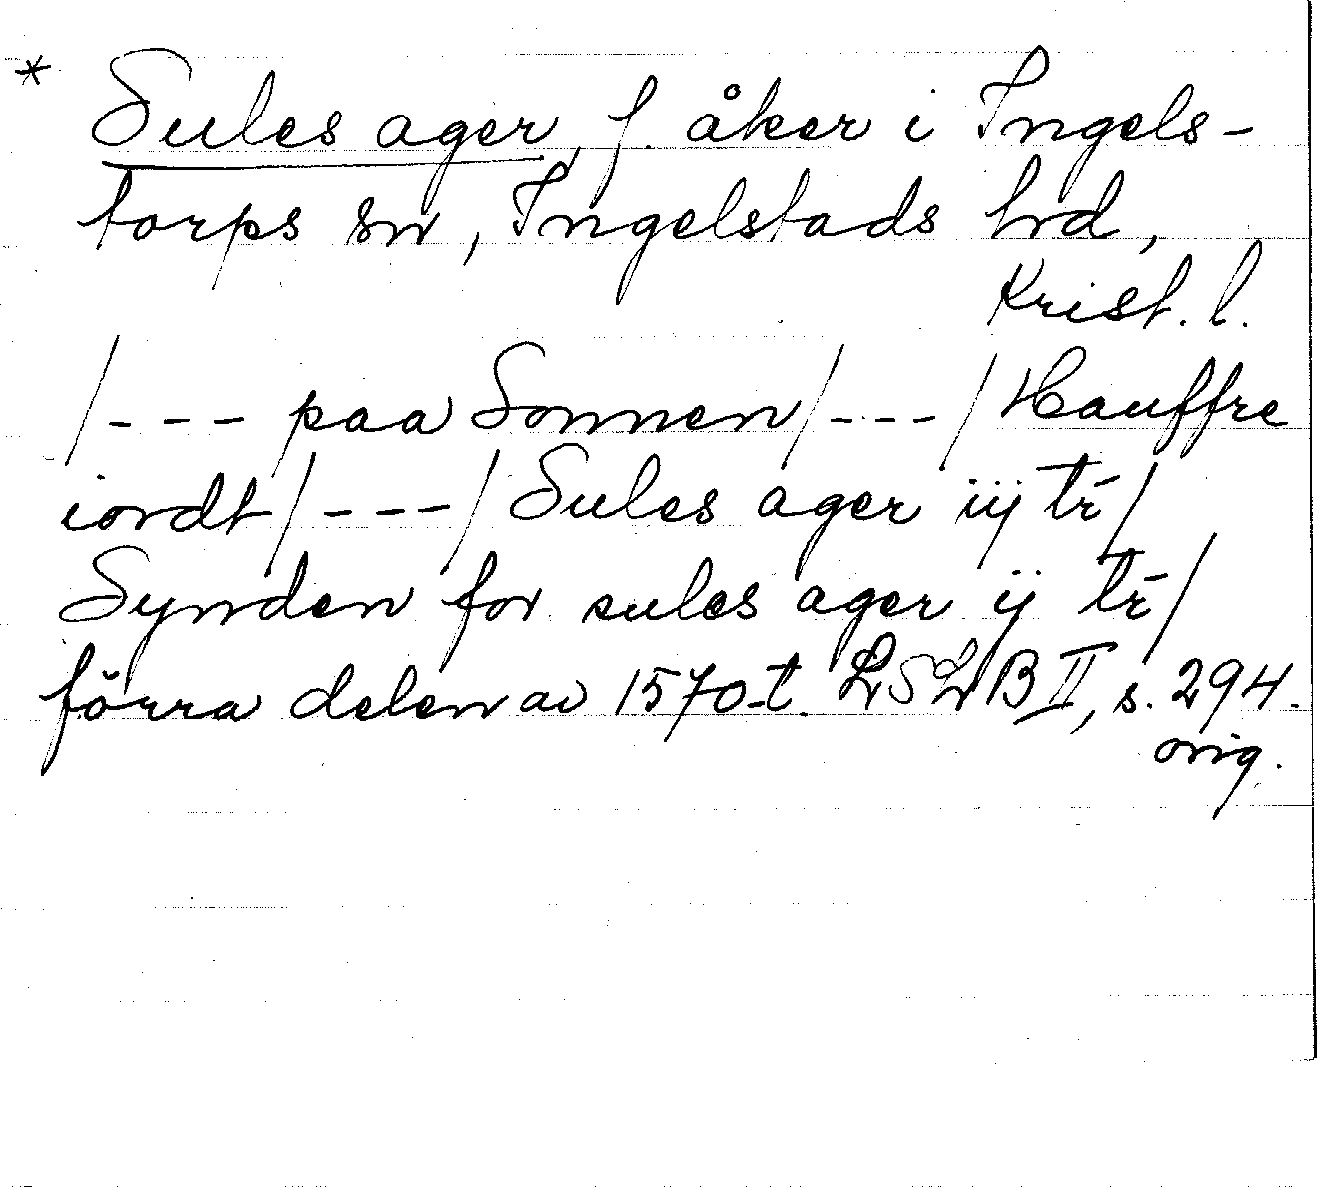 * Sules ager, f. åker i Ingels-
torps sn, Ingelstads hd,
Krist. l.
/--- paa Sonnen/---/Hauffre
iordt/---/Sules ager iij tr̄/
Synden for sules ager ij tr̄/
förra delen av 1570-t. LSLB II, s. 294.
orig.